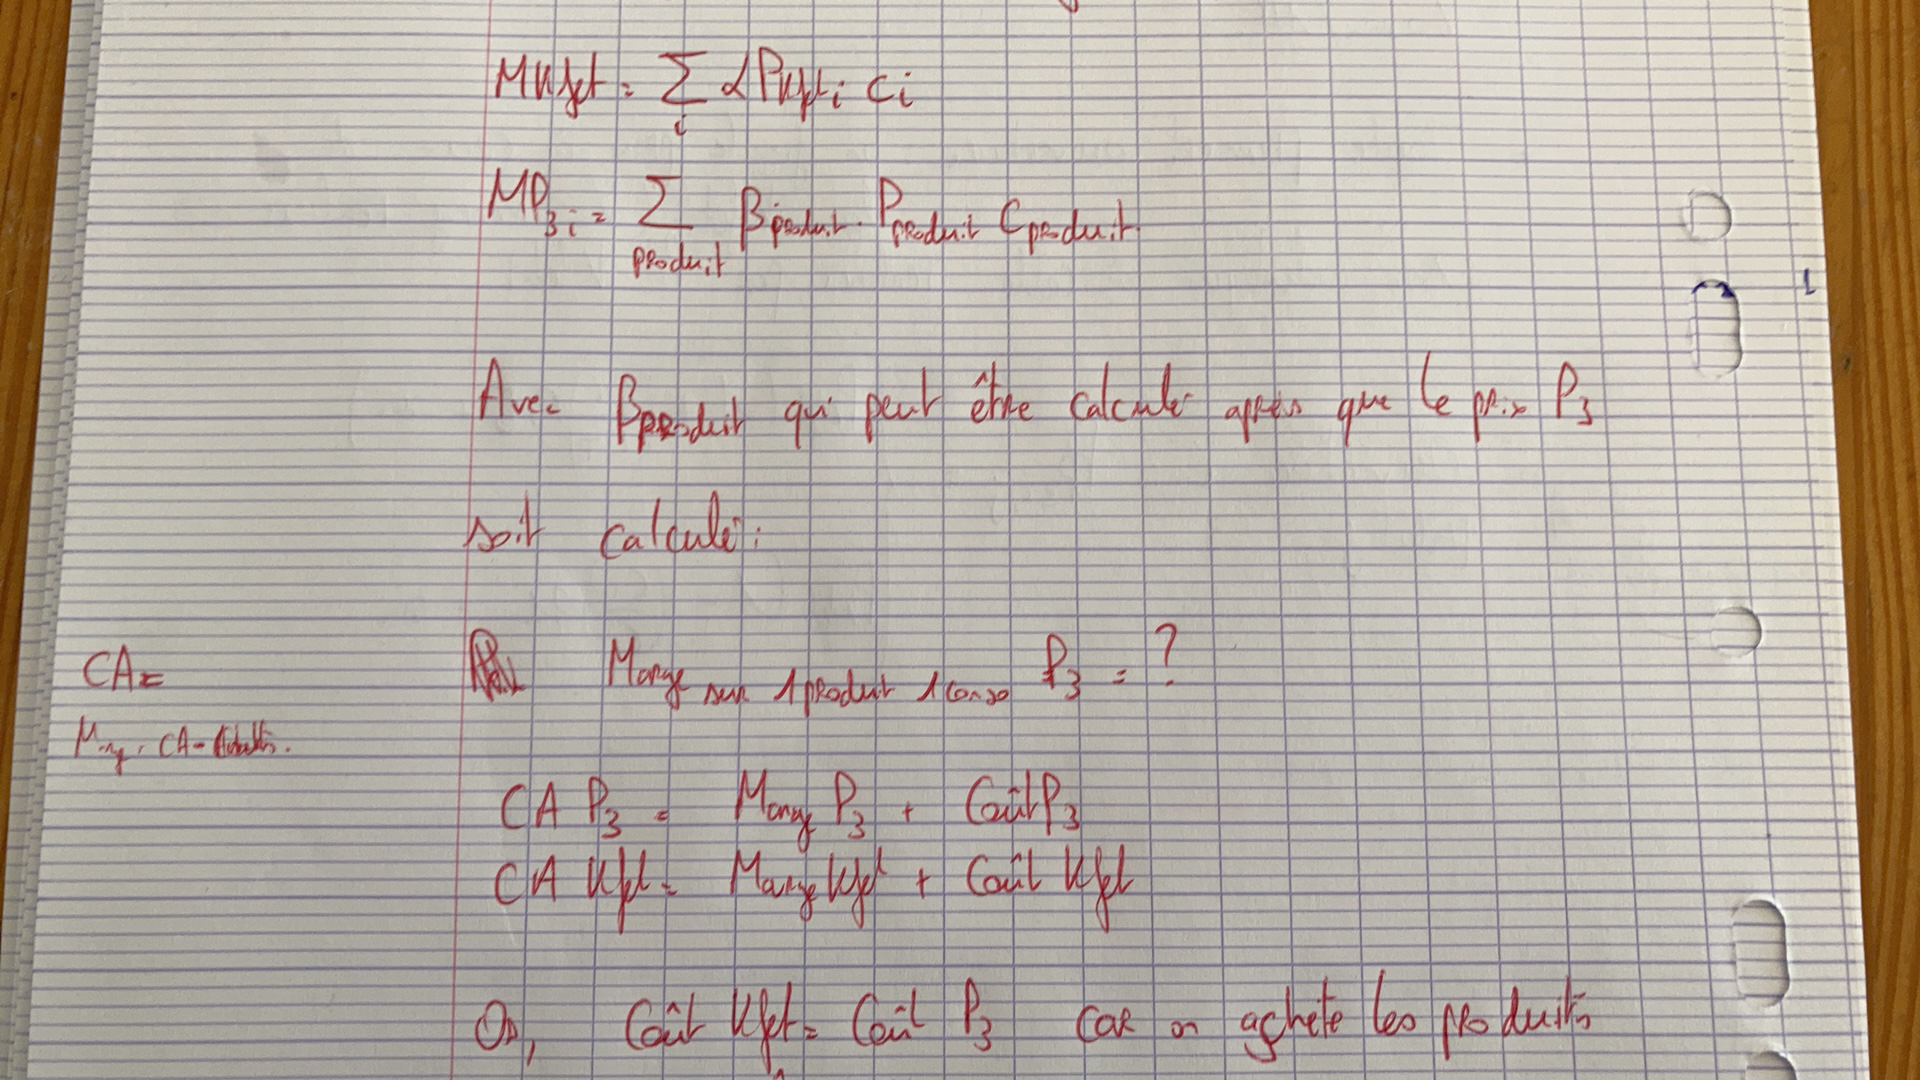 MKfet = Σ α PKfet i ci
i
MP3i = Σ βproduit . Pproduit Cproduit
produit
Avec βproduit qui peut être calculé après que le prix P3
soit calculé :
CA =
Marge sur 1 produit 1 conso P3 = ?
Marg = CA -
CA P3 = Marge P3 + Coût P3
CA Kfet = Marge Kfet + Coût Kfet
Or, Coût Kfet = Coût P3 car on achete les produits